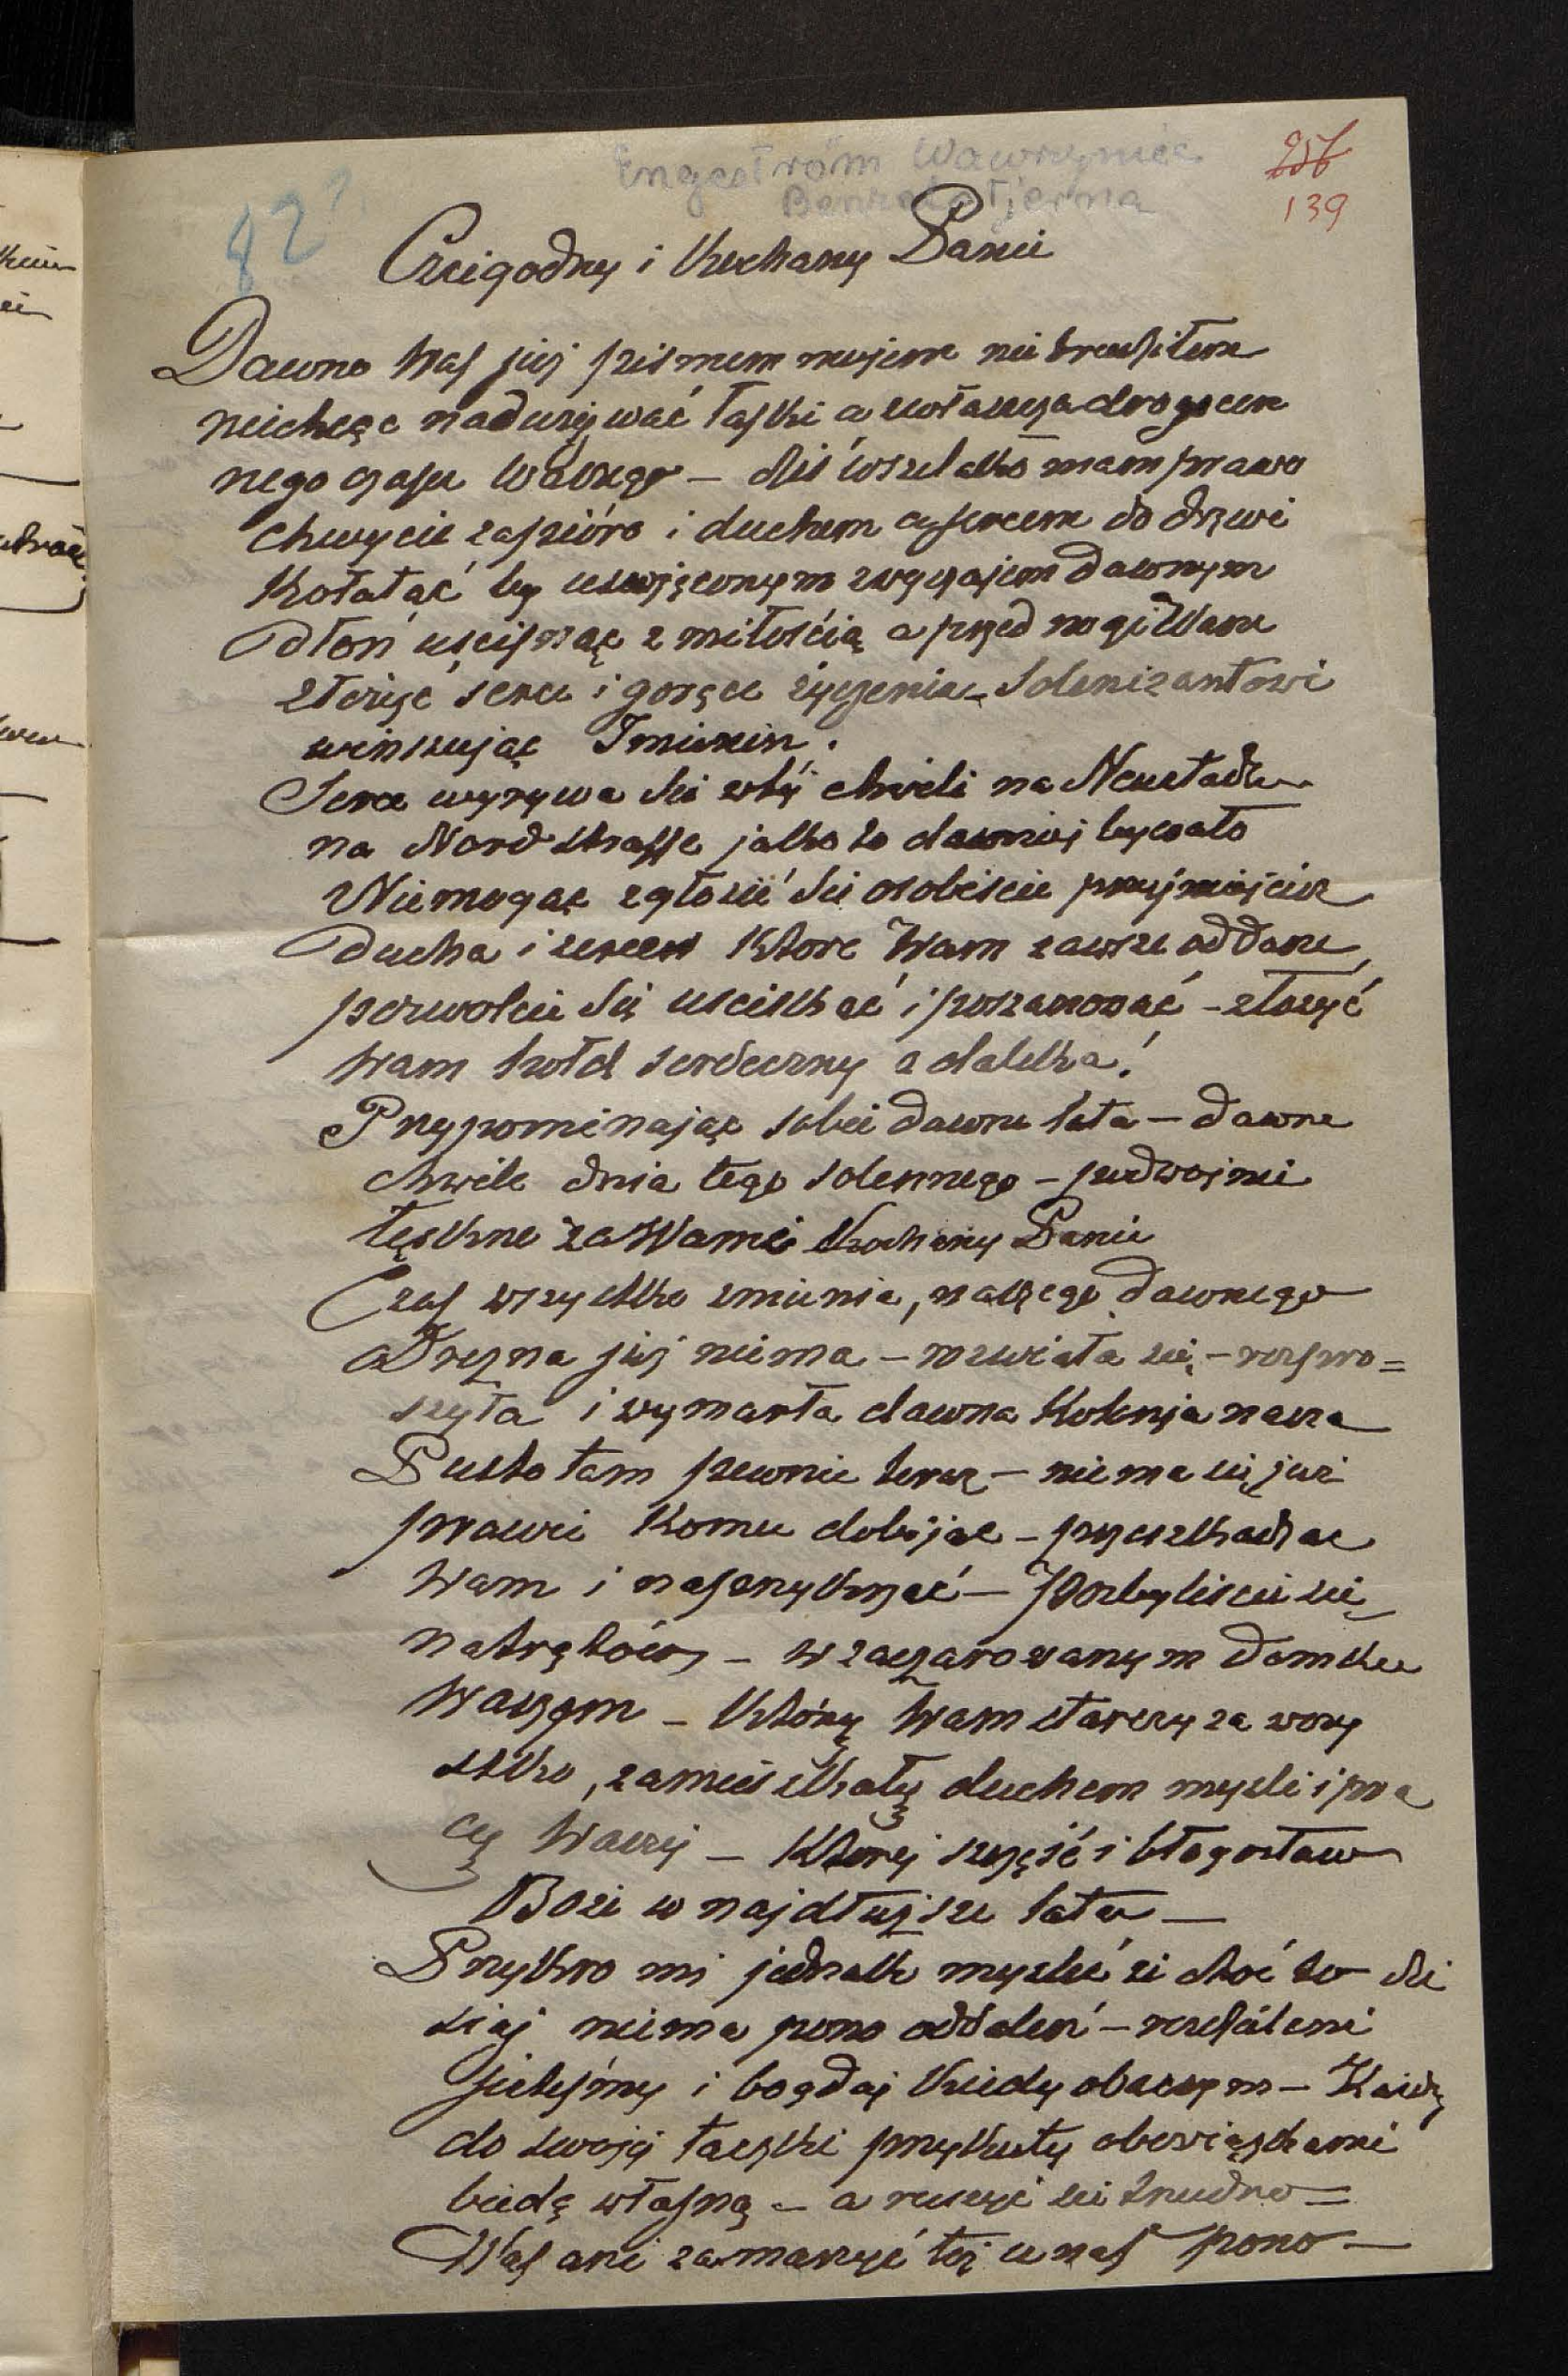 Engeström Wawrzyniec
Benzelstjerna
256
139
82?
Czcigodny i Kochany Panie
Dawno Was już pismem mojem nie trudziłem
niechcąc nadużywać łaski a zwłaszcza drogocen
nego czasu Waszego — dziś wszelako mam prawo
chwycić za pióro i duchem a sercem do drzwi
Kołatać by uświęconym zwyczajem dawnym
dłoń uścisnąć z miłością a przed nogi Wasze
złożyć serce i gorące życzenia — Solenizantowi
winszując Imienin.
Serce wyrywa się w tej chwili na Neustadt
na Nordstrasse jak to dawniej bywało
Niemogąc zgłosić się osobiście przyjmijcież
ducha i serce Które Wam zawsze oddane,
pozwólcie się uściskać i poszanować — złożyć
Wam hołd serdeczny z daleka!
Przypominając sobie dawne lata — dawne
chwile dnia tego solennego — podwójnie
tęskno za Wami Kochany Panie
Czas wszystko zmienia, naszego dawnego
Drezna już niema — rozwiała się — rozpro=
szyła i wymarła dawna Kolonja nasza
Pusto tam pewnie teraz — niema się już
prawie Komu dobijać — przeszkadzać
Wam i naprzykrzać — Pozbyliście się
natrętów — w zaczarowanym domku
Waszym — Który Wam starczy za wszy
stko, zamieszkały duchem myśli i pra
cy Waszej — Której szczęść i błogosław
Boże w najdłuższe lata —
Przykro mi jednak myśleć że choć to dzi
siaj niema pono oddaleń — rozdzieleni
jesteśmy i bogdaj Kiedy obaczym — Każdy
do swojej taczki przykuty obowiązkami
biedą własną — a ruszyć się trudno =
Was ani zamarzyć też u nas pono —